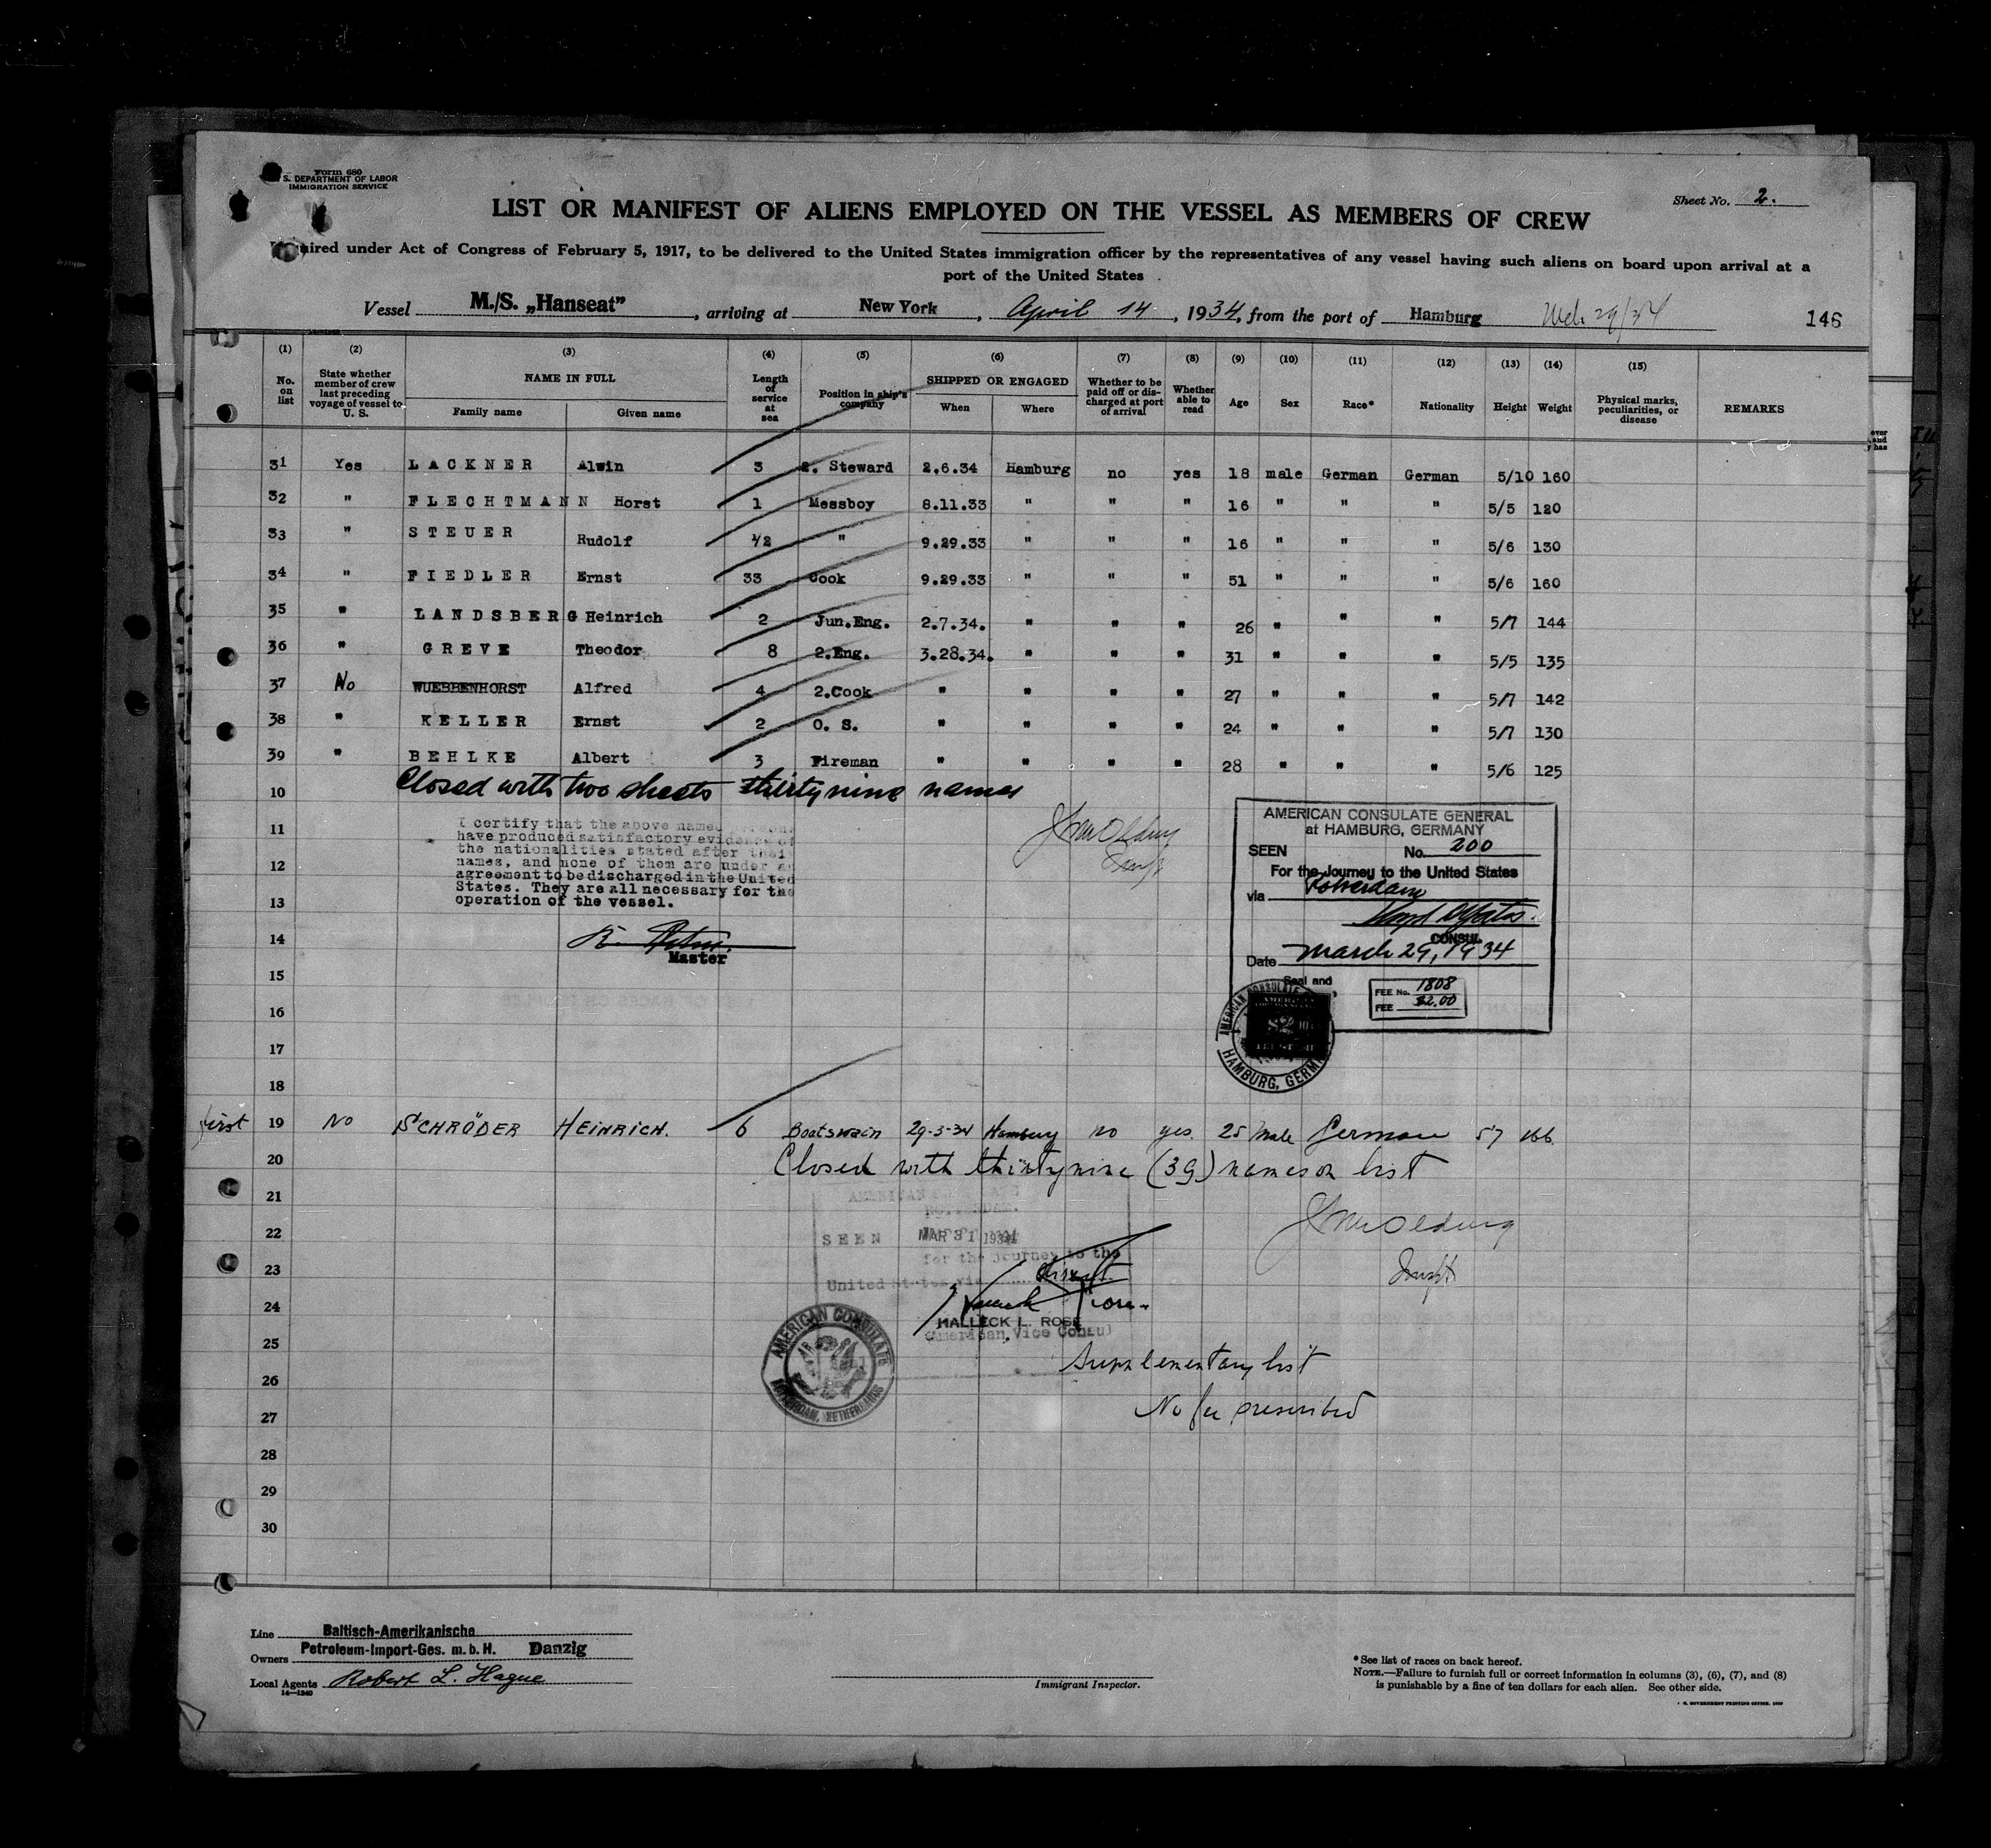 Form 680
S. DEPARTMENT OF LABOR
IMMIGRATION SERVICE
Sheet No. 2.
LIST OR MANIFEST OF ALIENS EMPLOYED ON THE VESSEL AS MEMBERS OF CREW
uired under Act of Congress of February 5, 1917, to be delivered to the United States immigration officer by the representatives of any vessel having such aliens on board upon arrival at a
port of the United States
Vessel M./S. „Hanseat” , arriving at New York , April 14 , 1934, from the port of Hamburg
146
(1) (2) (3) (4) (5) (6) (7) (8) (9) (10) (11) (12) (13) (14) (15)
No. on list State whether member of crew last preceding voyage of vessel to U. S. NAME IN FULL Family name Given name Length of service at sea Position in ship's company SHIPPED OR ENGAGED When Where Whether to be paid off or discharged at port of arrival Whether able to read Age Sex Race* Nationality Height Weight Physical marks, peculiarities, or disease REMARKS
31 Yes LACKNER Alwin 3 2. Steward 2.6.34 Hamburg no yes 18 male German German 5/10 160
32 " FLECHTMANN Horst 1 Messboy 8.11.33 " " " 16 " " " 5/5 120
33 " STEUER Rudolf 1/2 " 9.29.33 " " " 16 " " " 5/6 130
34 " FIEDLER Ernst 33 Cook 9.29.33 " " " 51 " " " 5/6 160
35 " LANDSBERG Heinrich 2 Jun.Eng. 2.7.34. " " " 26 " " " 5/7 144
36 " GREVE Theodor 8 2.Eng. 3.28.34. " " " 31 " " " 5/5 135
37 No WUEBBENHORST Alfred 4 2.Cook " " " " 27 " " " 5/7 142
38 " KELLER Ernst 2 O. S. " " " " 24 " " " 5/7 130
39 " BEHLKE Albert 3 Fireman " " " " 28 " " " 5/6 125
10 Closed with two sheets thirty nine names
11
12
13
14
15
16
17
18
I certify that the above named
have produced satisfactory evidence of
the nationalities stated after their
names, and none of them are under an
agreement to be discharged in the United
States. They are all necessary for the
operation of the vessel.
Master
AMERICAN CONSULATE GENERAL
at HAMBURG, GERMANY
SEEN No. 200
For the Journey to the United States
via Rotterdam
CONSUL
Date March 29, 1934
Seal and
FEE No. 1808
FEE $2.00
AMERICAN CONSULATE
HAMBURG, GERM
first 19 No SCHRÖDER HEINRICH. 6 Boatswain 29-3-34 Hamburg no yes. 25 male German 5'7 166
20 Closed with thirty nine (39) names on list
21
22
23
24
25
26
27
28
29
30
SEEN MAR 31 1934
for the journey to the
United States via direct
HALLECK L. ROSE
American Vice Consul
AMERICAN CONSULATE
ROTTERDAM, NETHERLANDS
Supplementary list
No fee prescribed
Line Baltisch-Amerikanische
Owners Petroleum-Import-Ges. m. b. H. Danzig
Local Agents Robert L. Hague
14—1240
Immigrant Inspector.
*See list of races on back hereof.
NOTE.—Failure to furnish full or correct information in columns (3), (6), (7), and (8)
is punishable by a fine of ten dollars for each alien. See other side.